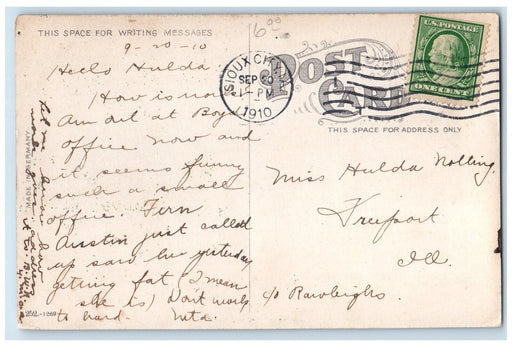 THIS SPACE FOR WRITING MESSAGES
6.00
9-20-10
Hello Hulda
How is now
Am at at Boyd
office now and
it seems funny
such a small
office. Fern
Austin just called
up saw her yesterday
getting fat (I mean
she is) Dont work
to hard. Meta
252-1269
MADE IN GERMANY
Let me know how
POST CARD
SIOUX CITY, IA.
SEP 20
PM
1910
U.S. POSTAGE
ONE CENT
THIS SPACE FOR ADDRESS ONLY
Miss Hulda Nolting
Freeport
Ill.
c/o Rawleighs